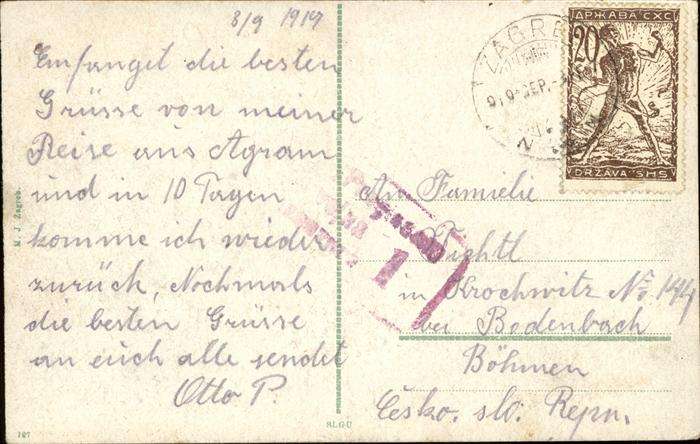 8/9 1919
Empfanget die besten
Grüsse von meiner
Reise aus Agram
und in 10 Tagen
komme ich wieder
zurück, Nochmals
die besten Grüsse
an euch alle sendet
Otto P.
An Familie
Tichtl
in Krochwitz No 144
bei Bodenbach
Böhmen
Česko. slv. Repu.
ДРЖАВА СХС
20
DRŽAVA SHS
ZAGREB
919 SEP.
1
M. J. Zagreb.
107
SLGU